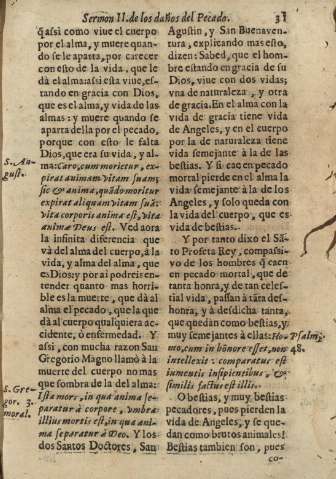 Sermon II. de los daños del Pecado. 31
q̃ assi como viue el cuerpo
por el alma, y muere quan-
do se le aparta, por carecer
con esto de la vida, que le
dà el alma: assi esta viue, es-
tando en gracia con Dios,
que es el alma, y vida de las
almas: y muere quando se
aparta della por el pecado,
porque con esto le falta
Dios, que era su vida, y al-
ma: Caro, cum moritur, ex-
pirat animam vitam suam;
sic & anima, quãdo moritur
expirat aliquam vitam suã:
vita corporis anima est, vita
animæ Deus est. Ved aora
la infinita diferencia que
và del alma del cuerpo, à la
vida, y alma del alma, que
es Dios: y por ai podreis en-
tender quanto mas horri-
ble es la muerte, que dà al
alma el pecado, que la que
dà al cuerpo qualquiera ac-
cidente, ò enfermedad. Y
assi, con mucha razon San
Gregorio Magno llamò à la
muerte del cuerpo no mas
que sombra de la del alma:
Ista mors, in qua anima se-
paratur à corpore, vmbra
illius mortis est, in qua ani-
ma separatur à Deo. Y los
dos Santos Doctores, San
S. Au-
gust.
S. Gre-
gor. 3.
moral.
Agustin, y San Buenaven-
tura, explicando mas esto,
dizen: Sabed, que el hom-
bre estando en gracia de su
Dios, viue con dos vidas;
vna de naturaleza, y otra
de gracia. En el alma con la
vida de gracia tiene vida
de Angeles, y en el cuerpo
por la de naturaleza tiene
vida semejante à la de las
bestias. Y si cae en pecado
mortal pierde en el alma la
vida semejante à la de los
Angeles, y solo queda con
la vida del cuerpo, que es
vida de bestias.
Y por tanto dixo el Sã-
to Profeta Rey, compassi-
vo de los hombres q̃ caen
en pecado mortal, que de
tanta honra, y de tan celes-
tial vida, passan à tãta des-
honra, y à desdicha tanta,
que quedan como bestias, y
muy semejantes à ellas: Ho-
mo, cum in honore esset, non
intellexit: comparatus est
iumentis insipientibus, &
similis factus est illis.
Psalm.
48.
O bestias, y muy bestias
pecadores, pues pierden la
vida de Angeles, y se que-
dan como brutos animales!
Bestias tambien son, pues
co-